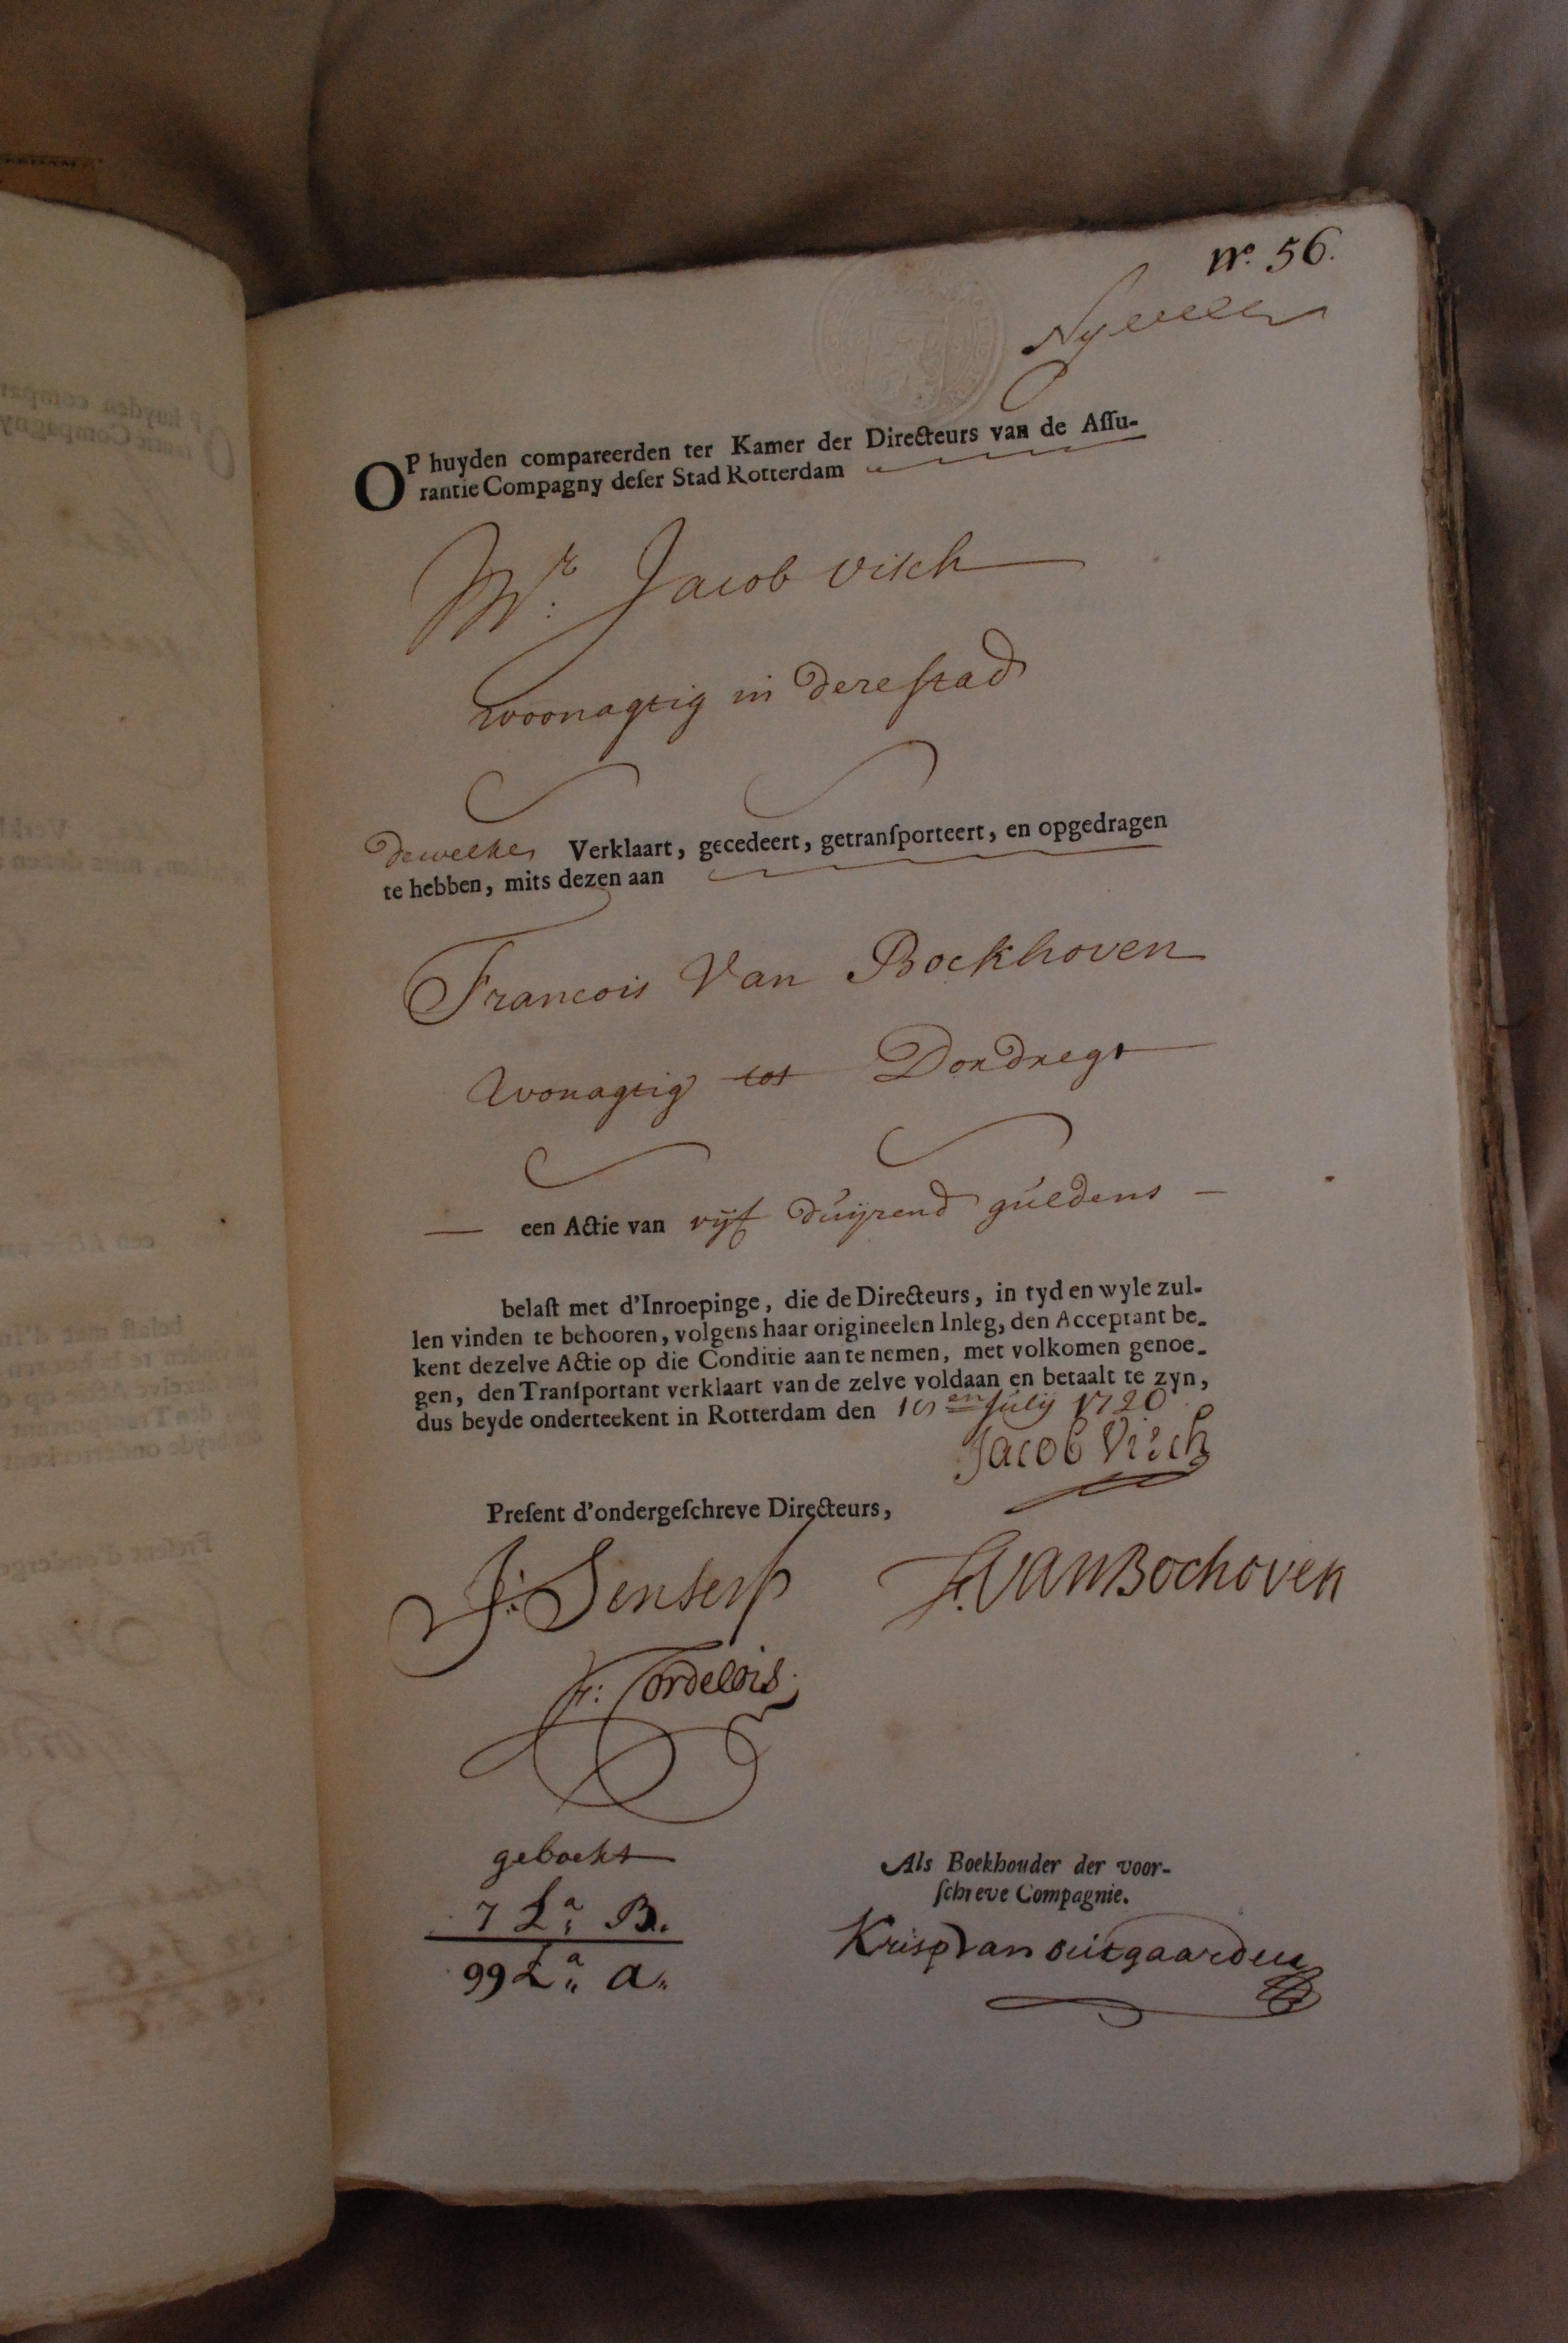 No. 56.
OP huyden compareerden ter Kamer der Directeurs van de Aſſu-
rantie Compagny deſer Stad Rotterdam
Mr: Jacob Visch
woonagtig in dereſtad
dewelke Verklaart, gecedeert, getranſporteert, en opgedragen
te hebben, mits dezen aan
Francois Van Bockhoven
Wonagtig tot Dordregt
een Actie van vijf duijzend guldens
belaſt met d'Inroepinge, die de Directeurs, in tyd en wyle zul-
len vinden te behooren, volgens haar origineelen Inleg, den Acceptant be-
kent dezelve Actie op die Conditie aan te nemen, met volkomen genoe-
gen, den Tranſportant verklaart van de zelve voldaan en betaalt te zyn,
dus beyde onderteekent in Rotterdam den Julij 1720
Jacob Visch
Preſent d'ondergeſchreve Directeurs,
J: Senserf F. Van Bochoven
geboekt
7 La: B.
99 La: a.
Als Boekhouder der voor-
ſchreve Compagnie.
Krisp Van outgaarden